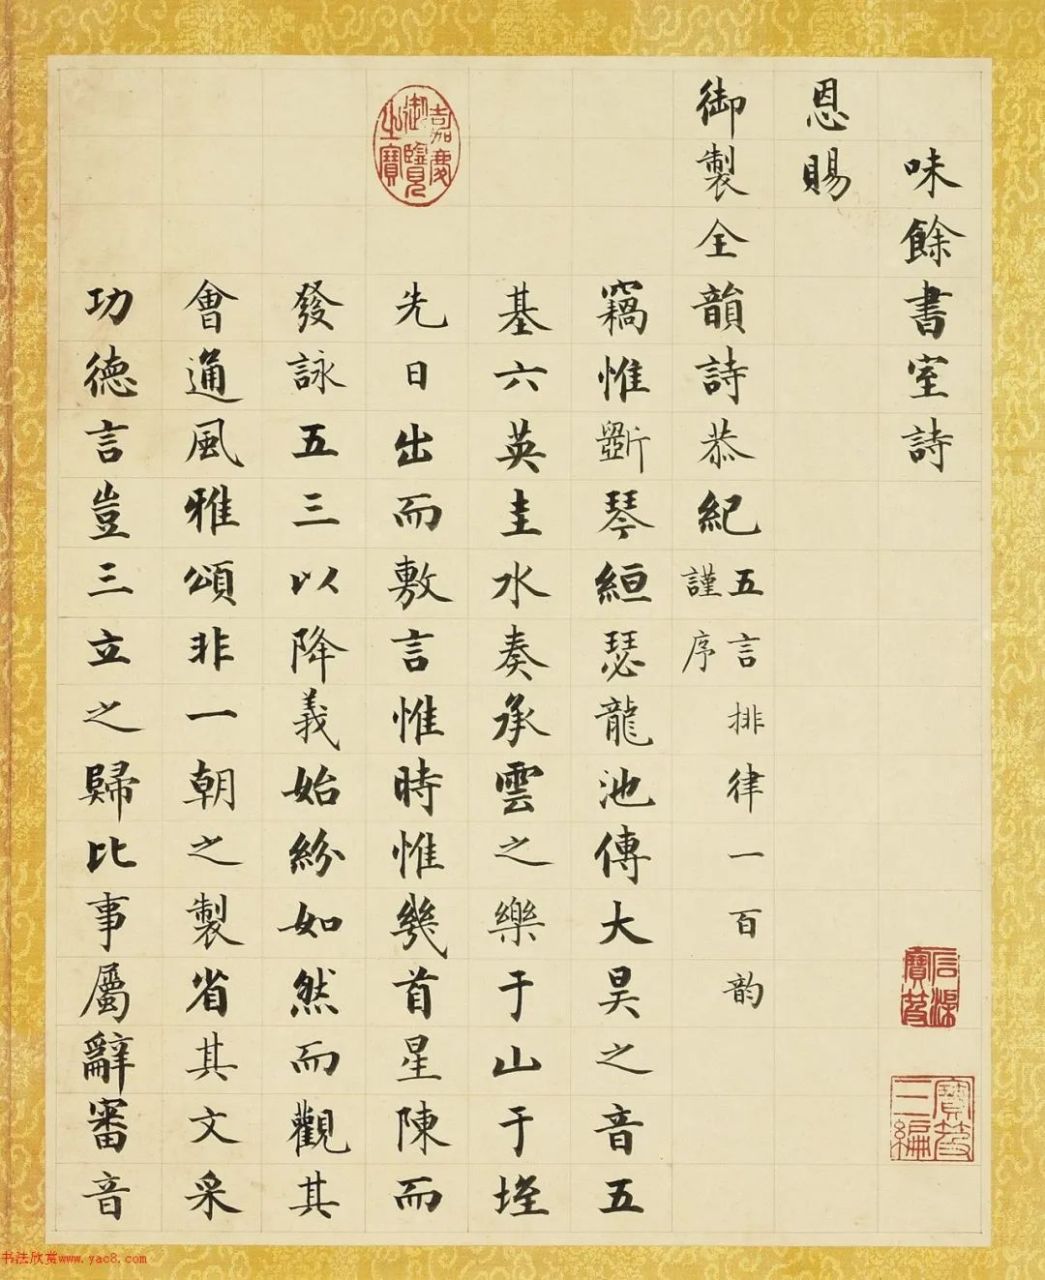 味餘書室詩
恩賜
御製全韻詩恭紀
五言排律一百韵
謹序
竊惟斵琴絙瑟龍池傳大昊之音五
基六英圭水奏承雲之樂于山于垤
先日出而敷言惟時惟幾首星陳而
發詠五三以降義始紛如然而觀其
會通風雅頌非一朝之製省其文采
功德言豈三立之歸比事屬辭審音
嘉慶御覽之寶
寶笈三編
书法欣赏www.yac8.com